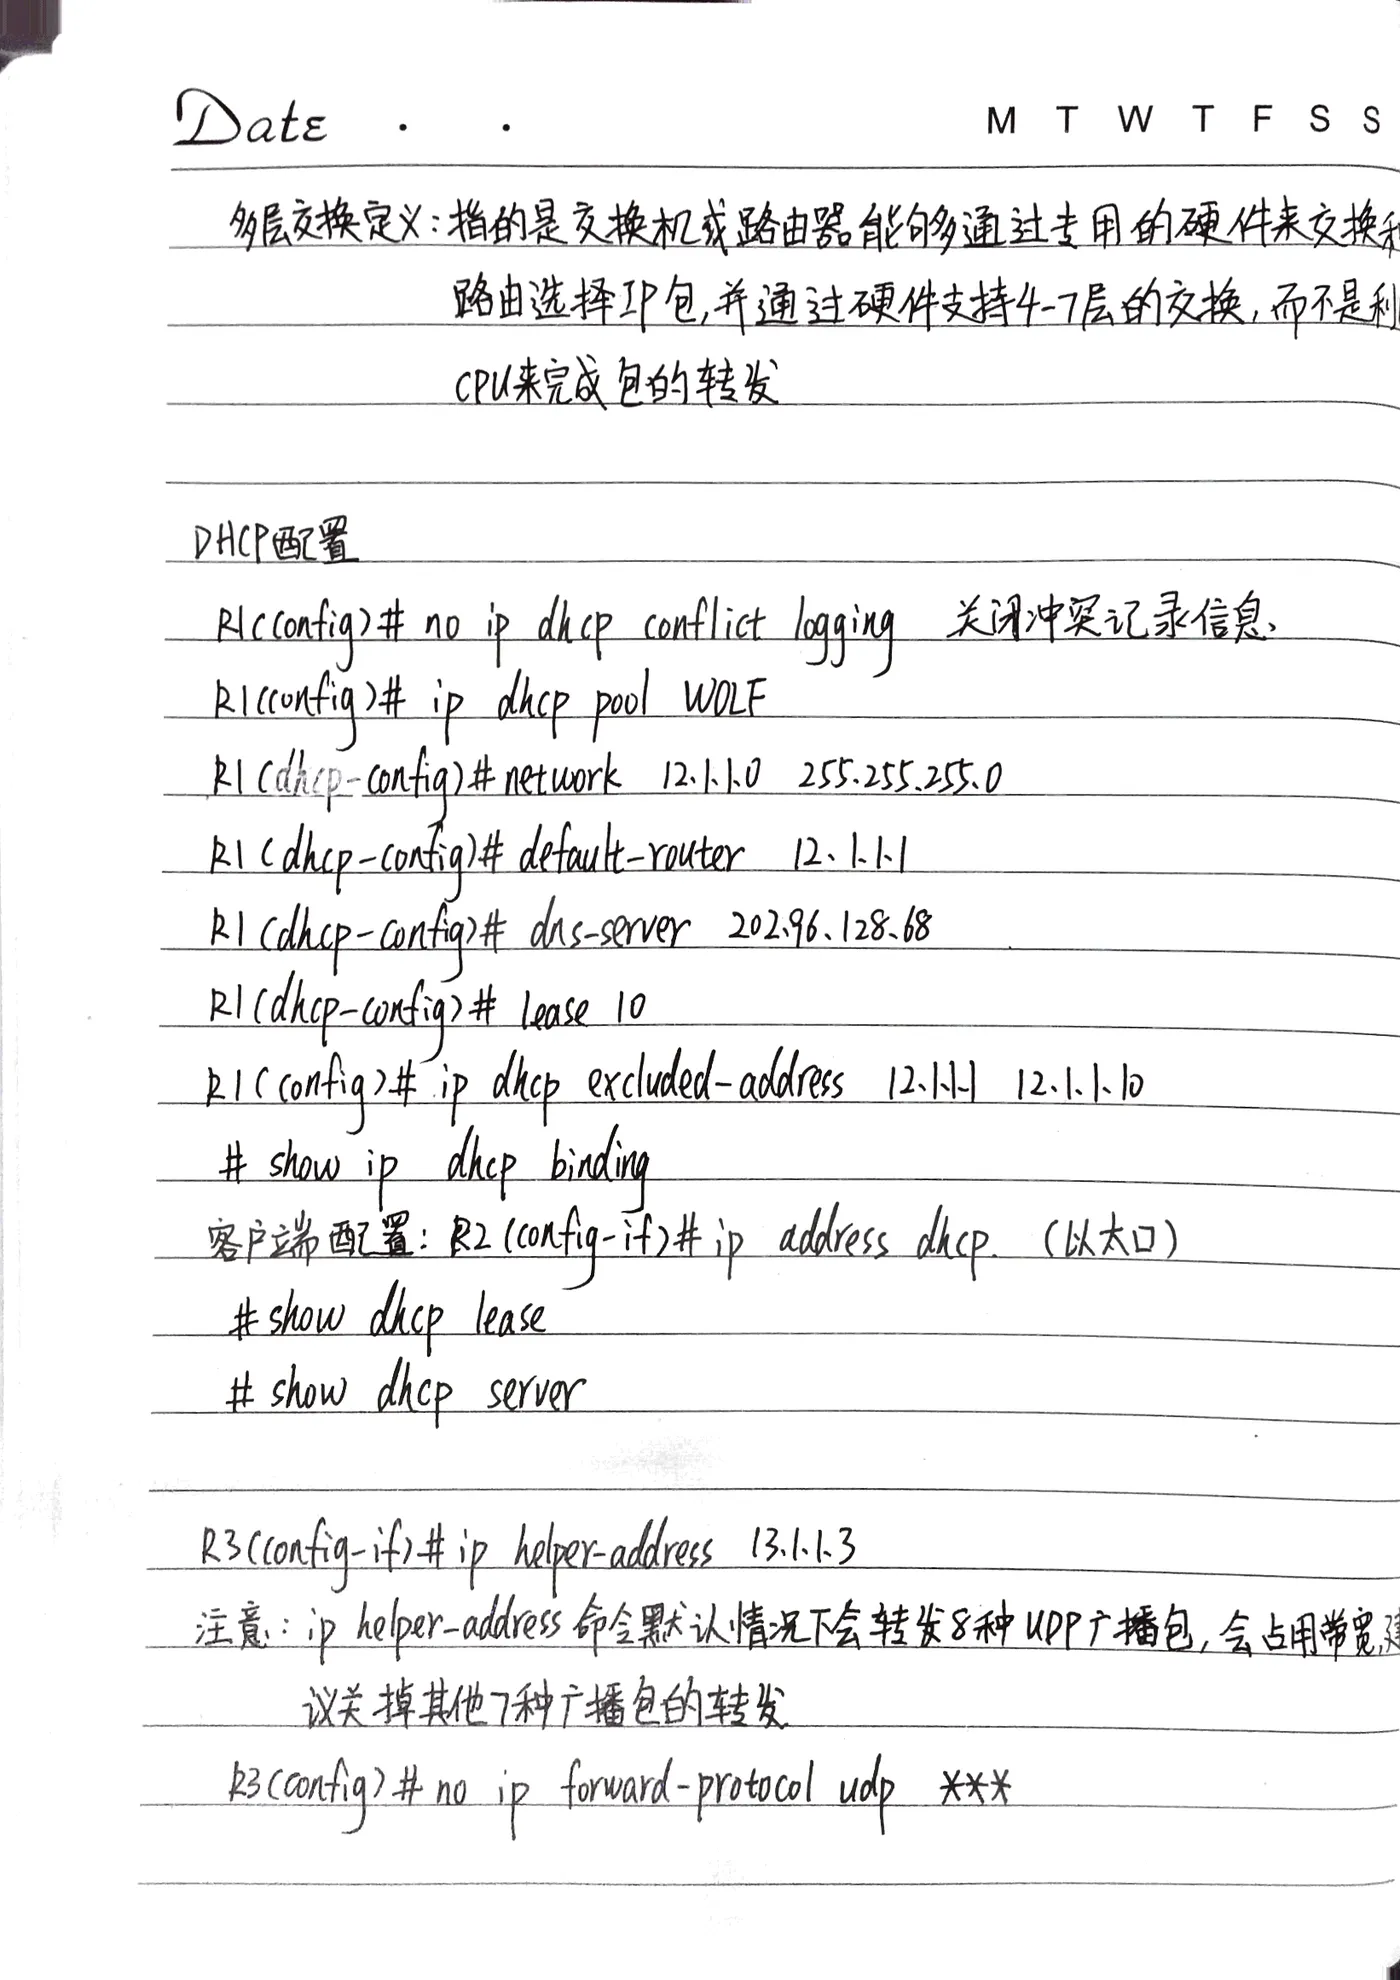 Date . .
M T W T F S S
多层交换定义:指的是交换机或路由器能够多通过专用的硬件来交换和
路由选择IP包,并通过硬件支持4-7层的交换,而不是利
CPU来完成包的转发
DHCP配置
R1(config)# no ip dhcp conflict logging 关闭冲突记录信息、
R1(config)# ip dhcp pool WOLF
R1(dhcp-config)# network 12.1.1.0 255.255.255.0
R1(dhcp-config)# default-router 12.1.1.1
R1(dhcp-config)# dns-server 202.96.128.68
R1(dhcp-config)# lease 10
R1(config)# ip dhcp excluded-address 12.1.1.1 12.1.1.10
# show ip dhcp binding
客户端配置: R2(config-if)# ip address dhcp. (以太口)
# show dhcp lease
# show dhcp server
R3(config-if)# ip helper-address 13.1.1.3
注意: ip helper-address 命令默认情况下会转发8种UDP广播包,会占用带宽,建
议关掉其他7种广播包的转发
R3(config)# no ip forward-protocol udp ***